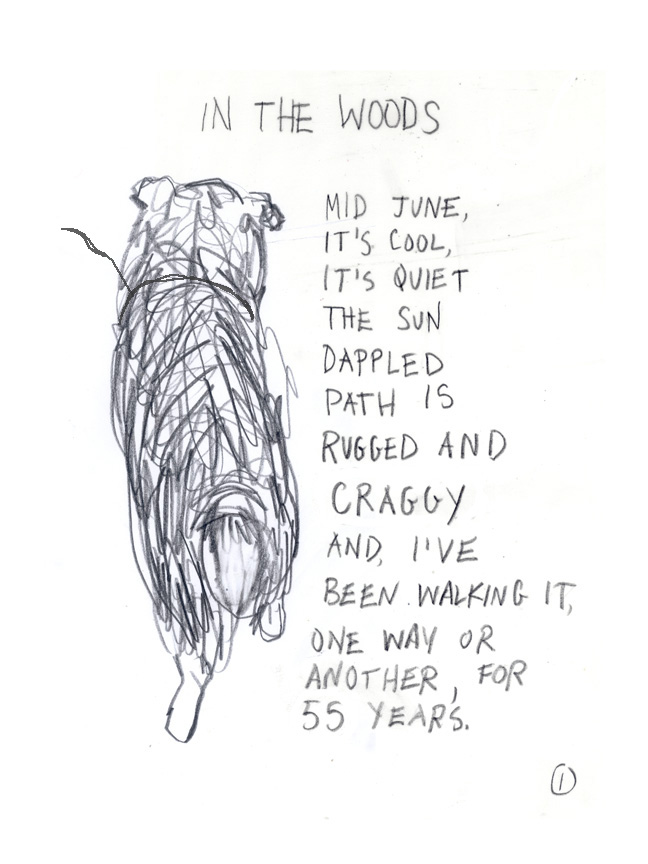 IN THE WOODS
MID JUNE,
IT'S COOL,
IT'S QUIET
THE SUN
DAPPLED
PATH IS
RUGGED AND
CRAGGY
AND, I'VE
BEEN WALKING IT,
ONE WAY OR
ANOTHER, FOR
55 YEARS.
1